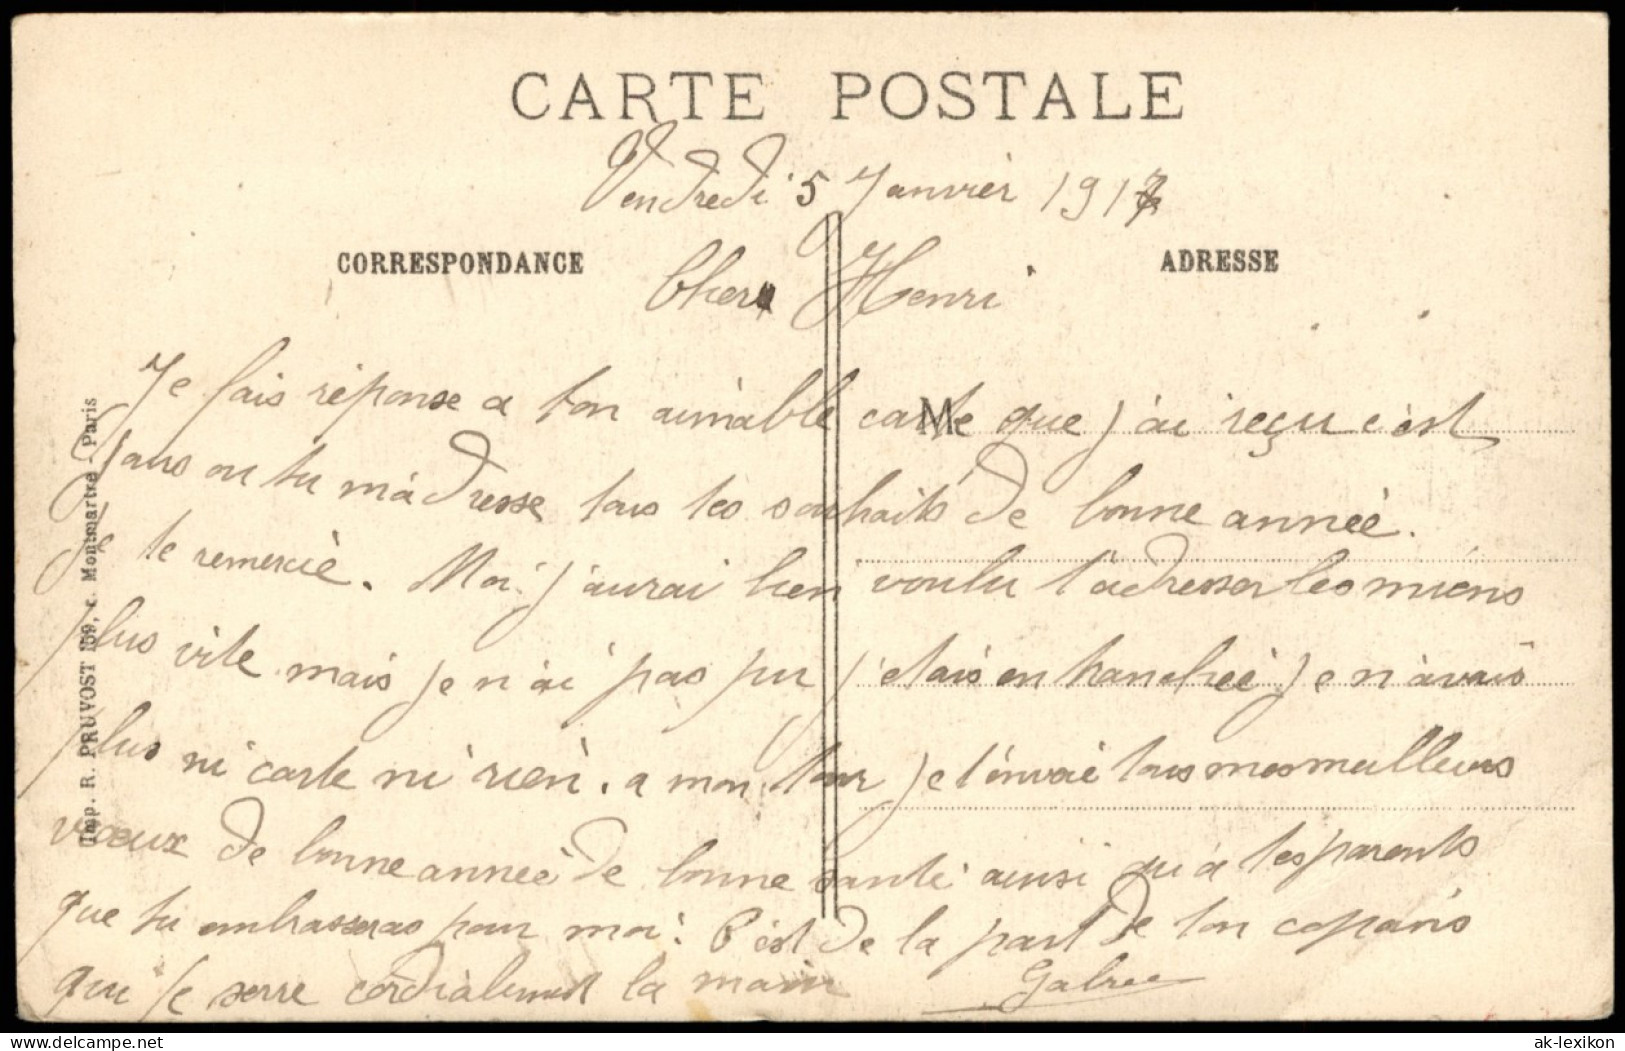 CARTE POSTALE
Vendredi 5 Janvier 1917
CORRESPONDANCE
ADRESSE
Cher Henri
Je fais réponse a ton aimable carte que j'ai reçu c'est
dans ou tu m'adresse tous tes souhaits de bonne année.
Je te remercie. Moi j'aurai bien voulu t'adresser les miens
plus vite mais je n'ai pas pu j'etais en tranchée je n'avais
plus ni carte ni rien. a mon tour je t'envoie tous mes meilleurs
voeux de bonne année de bonne santé ainsi qu'a tes parents
que tu embrasseras pour moi. C'est de la part de ton copains
qui te serre cordialement la main
M
Imp. R. PRUVOST 159, r. Montmartre - Paris
ak-lexikon.com